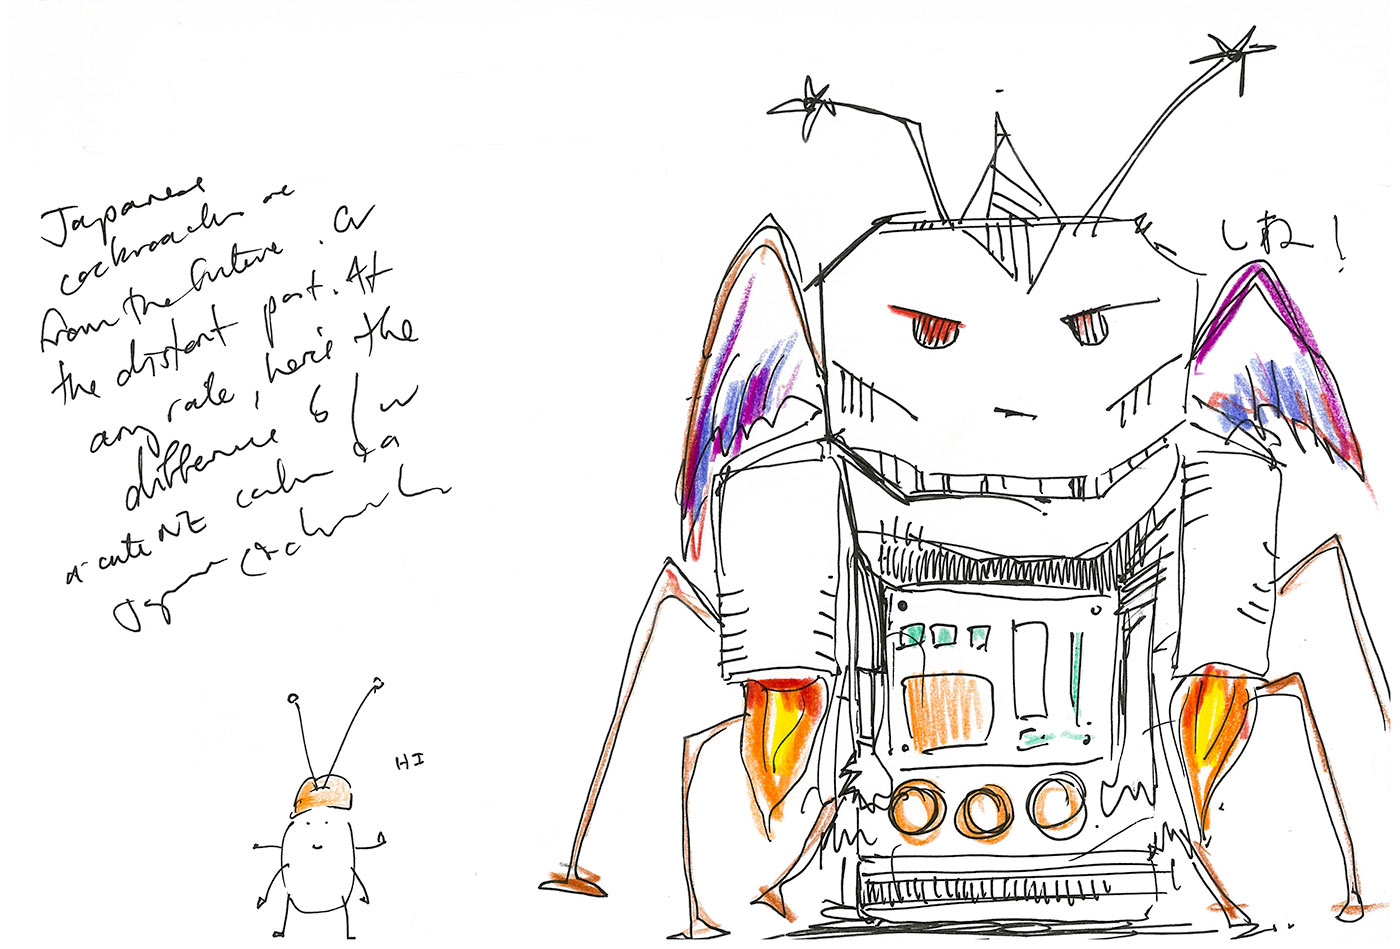 Japanese
cockroaches are
from the future. Or
the distant past. At
any rate, here's the
difference b/w
a cute NZ cockr & a
Japanese cockroach
HI
しね!